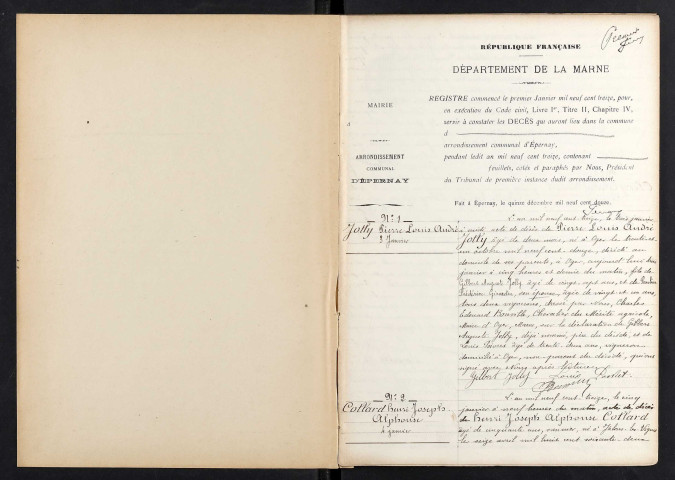 Premier
RÉPUBLIQUE FRANÇAISE
DÉPARTEMENT DE LA MARNE
MAIRIE
ARRONDISSEMENT
COMMUNAL
D'ÉPERNAY
REGISTRE commencé le premier Janvier mil neuf cent treize, pour,
en exécution du Code civil, Livre Ier, Titre II, Chapitre IV,
servir à constater les DÉCÈS qui auront lieu dans la commune
d
arrondissement communal d'Épernay,
pendant ledit an mil neuf cent treize, contenant
feuillets, cotés et paraphés par Nous, Président
du Tribunal de première instance dudit arrondissement.
Fait à Épernay, le quinze décembre mil neuf cent douze.
N° 1
Jolly Pierre Louis André
3 Janvier
L'an mil neuf cent treize, le trois janvier
acte de décès de Pierre Louis André
Jolly âgé de deux mois, né à Oger le trente et
un octobre mil neuf cent douze, décédé au
domicile de ses parents, à Oger, aujourd'hui trois
janvier à cinq heures et demie du matin, fils de
Gilbert Auguste Jolly âgé de vingt sept ans, et de
son épouse, âgée de vingt et un ans,
tous deux vignerons, dressé par Nous, Charles
Edouard Bonville, Chevalier du Mérite agricole,
Maire d'Oger, Marne, sur la déclaration de Gilbert
Auguste Jolly, déjà nommé, père du décédé, et de
Louis âgé de trente deux ans, vigneron
domicilié à Oger, non parent du décédé, qui ont
signé avec Nous après lecture
Gilbert Jolly Louis
N° 2
Collard Henri Joseph
Alphonse
janvier
L'an mil neuf cent treize, le cinq
janvier à neuf heures du matin, acte de décès
de Henri Joseph Alphonse Collard
âgé de cinquante ans, vannier, né à Jâlons les Vignes
le seize avril mil huit cent soixante deux